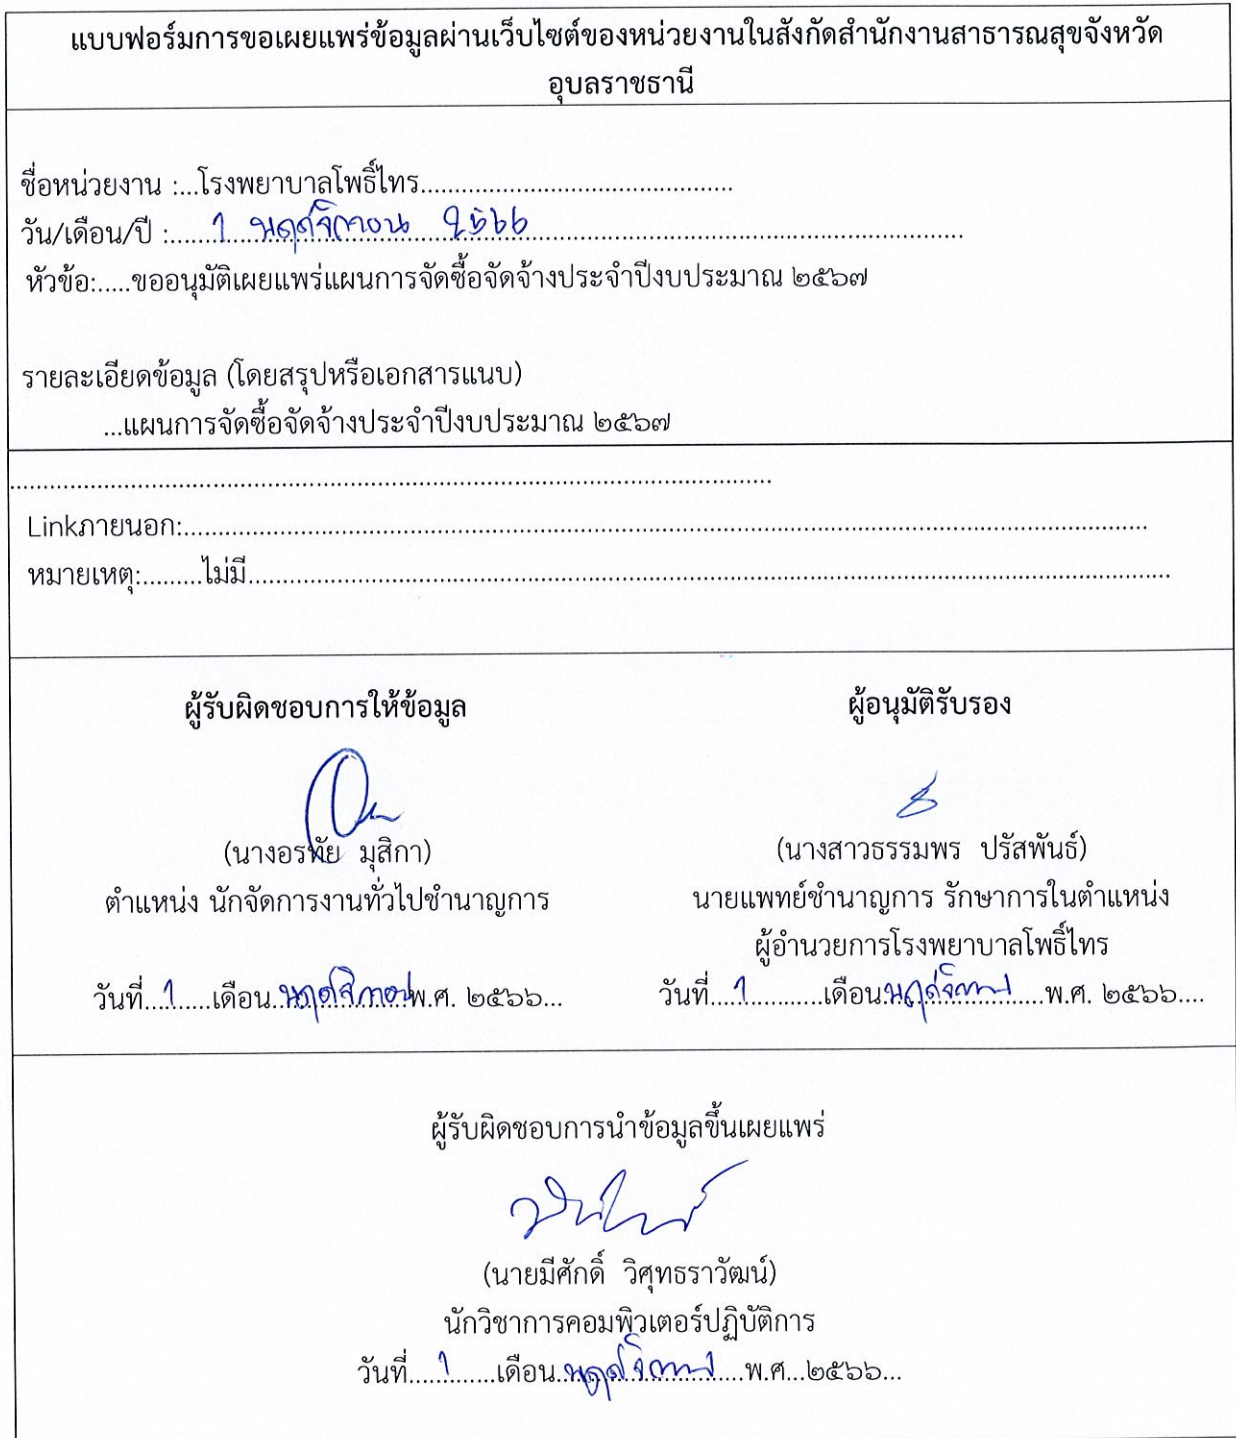 แบบฟอร์มการขอเผยแพร่ข้อมูลผ่านเว็บไซต์ของหน่วยงานในสังกัดสำนักงานสาธารณสุขจังหวัด
อุบลราชธานี
ชื่อหน่วยงาน :...โรงพยาบาลโพธิ์ไทร..............................................
วัน/เดือน/ปี :......1 พฤศจิกายน 2566................................................................
หัวข้อ:.....ขออนุมัติเผยแพร่แผนการจัดซื้อจัดจ้างประจำปีงบประมาณ ๒๕๖๗
รายละเอียดข้อมูล (โดยสรุปหรือเอกสารแนบ)
...แผนการจัดซื้อจัดจ้างประจำปีงบประมาณ ๒๕๖๗
..................................................................................................................
Linkภายนอก:................................................................................................................................................
หมายเหตุ:.........ไม่มี..........................................................................................................................................
ผู้รับผิดชอบการให้ข้อมูล
ผู้อนุมัติรับรอง
(นางอรทัย มุสิกา)
(นางสาวธรรมพร ปรัสพันธ์)
ตำแหน่ง นักจัดการงานทั่วไปชำนาญการ
นายแพทย์ชำนาญการ รักษาการในตำแหน่ง
ผู้อำนวยการโรงพยาบาลโพธิ์ไทร
วันที่...1......เดือน..พฤศจิกายน..พ.ศ. ๒๕๖๖...
วันที่....1............เดือน.พฤศจิกายน.....พ.ศ. ๒๕๖๖....
ผู้รับผิดชอบการนำข้อมูลขึ้นเผยแพร่
(นายมีศักดิ์ วิศุทธราวัฒน์)
นักวิชาการคอมพิวเตอร์ปฏิบัติการ
วันที่.....1.......เดือน..พฤศจิกายน....พ.ศ...๒๕๖๖...